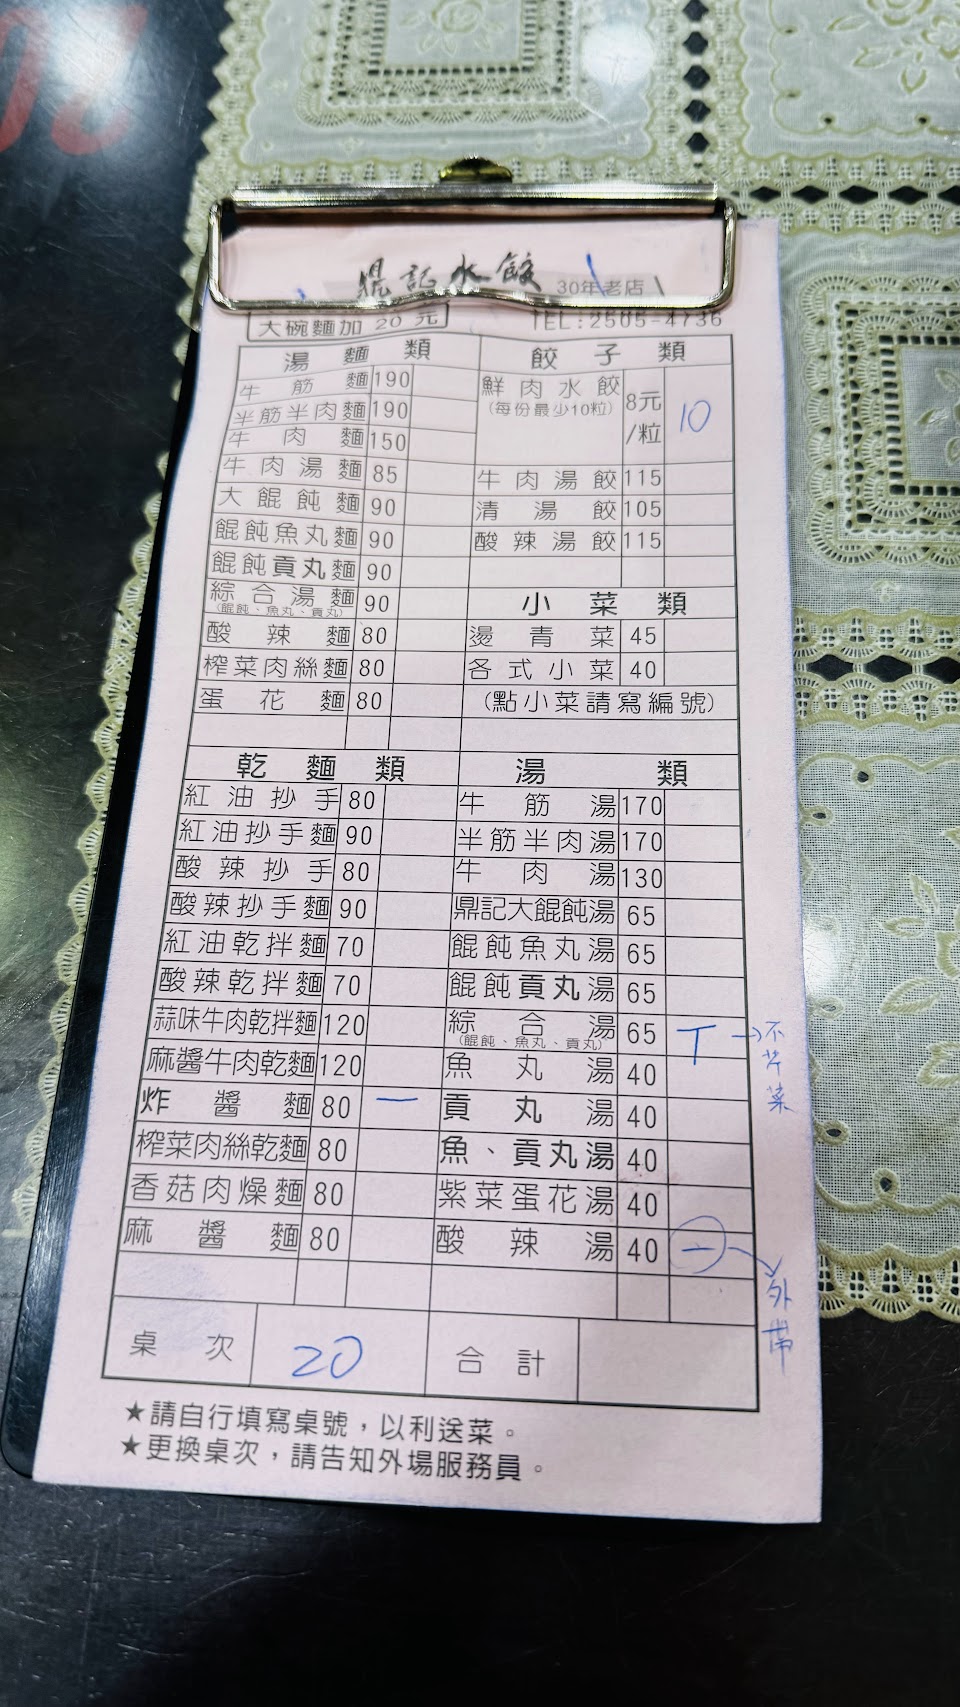 鼎記水餃 30年老店
大碗麵加 20 元 TEL:2505-4736
湯麵類
牛筋麵 190
半筋半肉麵 190
牛肉麵 150
牛肉湯麵 85
大餛飩麵 90
餛飩魚丸麵 90
餛飩貢丸麵 90
綜合湯麵 90
(餛飩、魚丸、貢丸)
酸辣麵 80
榨菜肉絲麵 80
蛋花麵 80
餃子類
鮮肉水餃 8元/粒 10
(每份最少10粒)
牛肉湯餃 115
清湯餃 105
酸辣湯餃 115
小菜類
燙青菜 45
各式小菜 40
(點小菜請寫編號)
乾麵類
紅油抄手 80
紅油抄手麵 90
酸辣抄手 80
酸辣抄手麵 90
紅油乾拌麵 70
酸辣乾拌麵 70
蒜味牛肉乾拌麵 120
麻醬牛肉乾麵 120
炸醬麵 80 一
榨菜肉絲乾麵 80
香菇肉燥麵 80
麻醬麵 80
湯類
牛筋湯 170
半筋半肉湯 170
牛肉湯 130
鼎記大餛飩湯 65
餛飩魚丸湯 65
餛飩貢丸湯 65
綜合湯 65 T → 不芹菜
(餛飩、魚丸、貢丸)
魚丸湯 40
貢丸湯 40
魚、貢丸湯 40
紫菜蛋花湯 40
酸辣湯 40 一 外帶
桌次 20 合計
★請自行填寫桌號，以利送菜。
★更換桌次，請告知外場服務員。